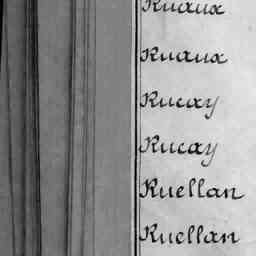 Ruaux
Ruaux
Rucay
Rucay
Ruellan
Ruellan